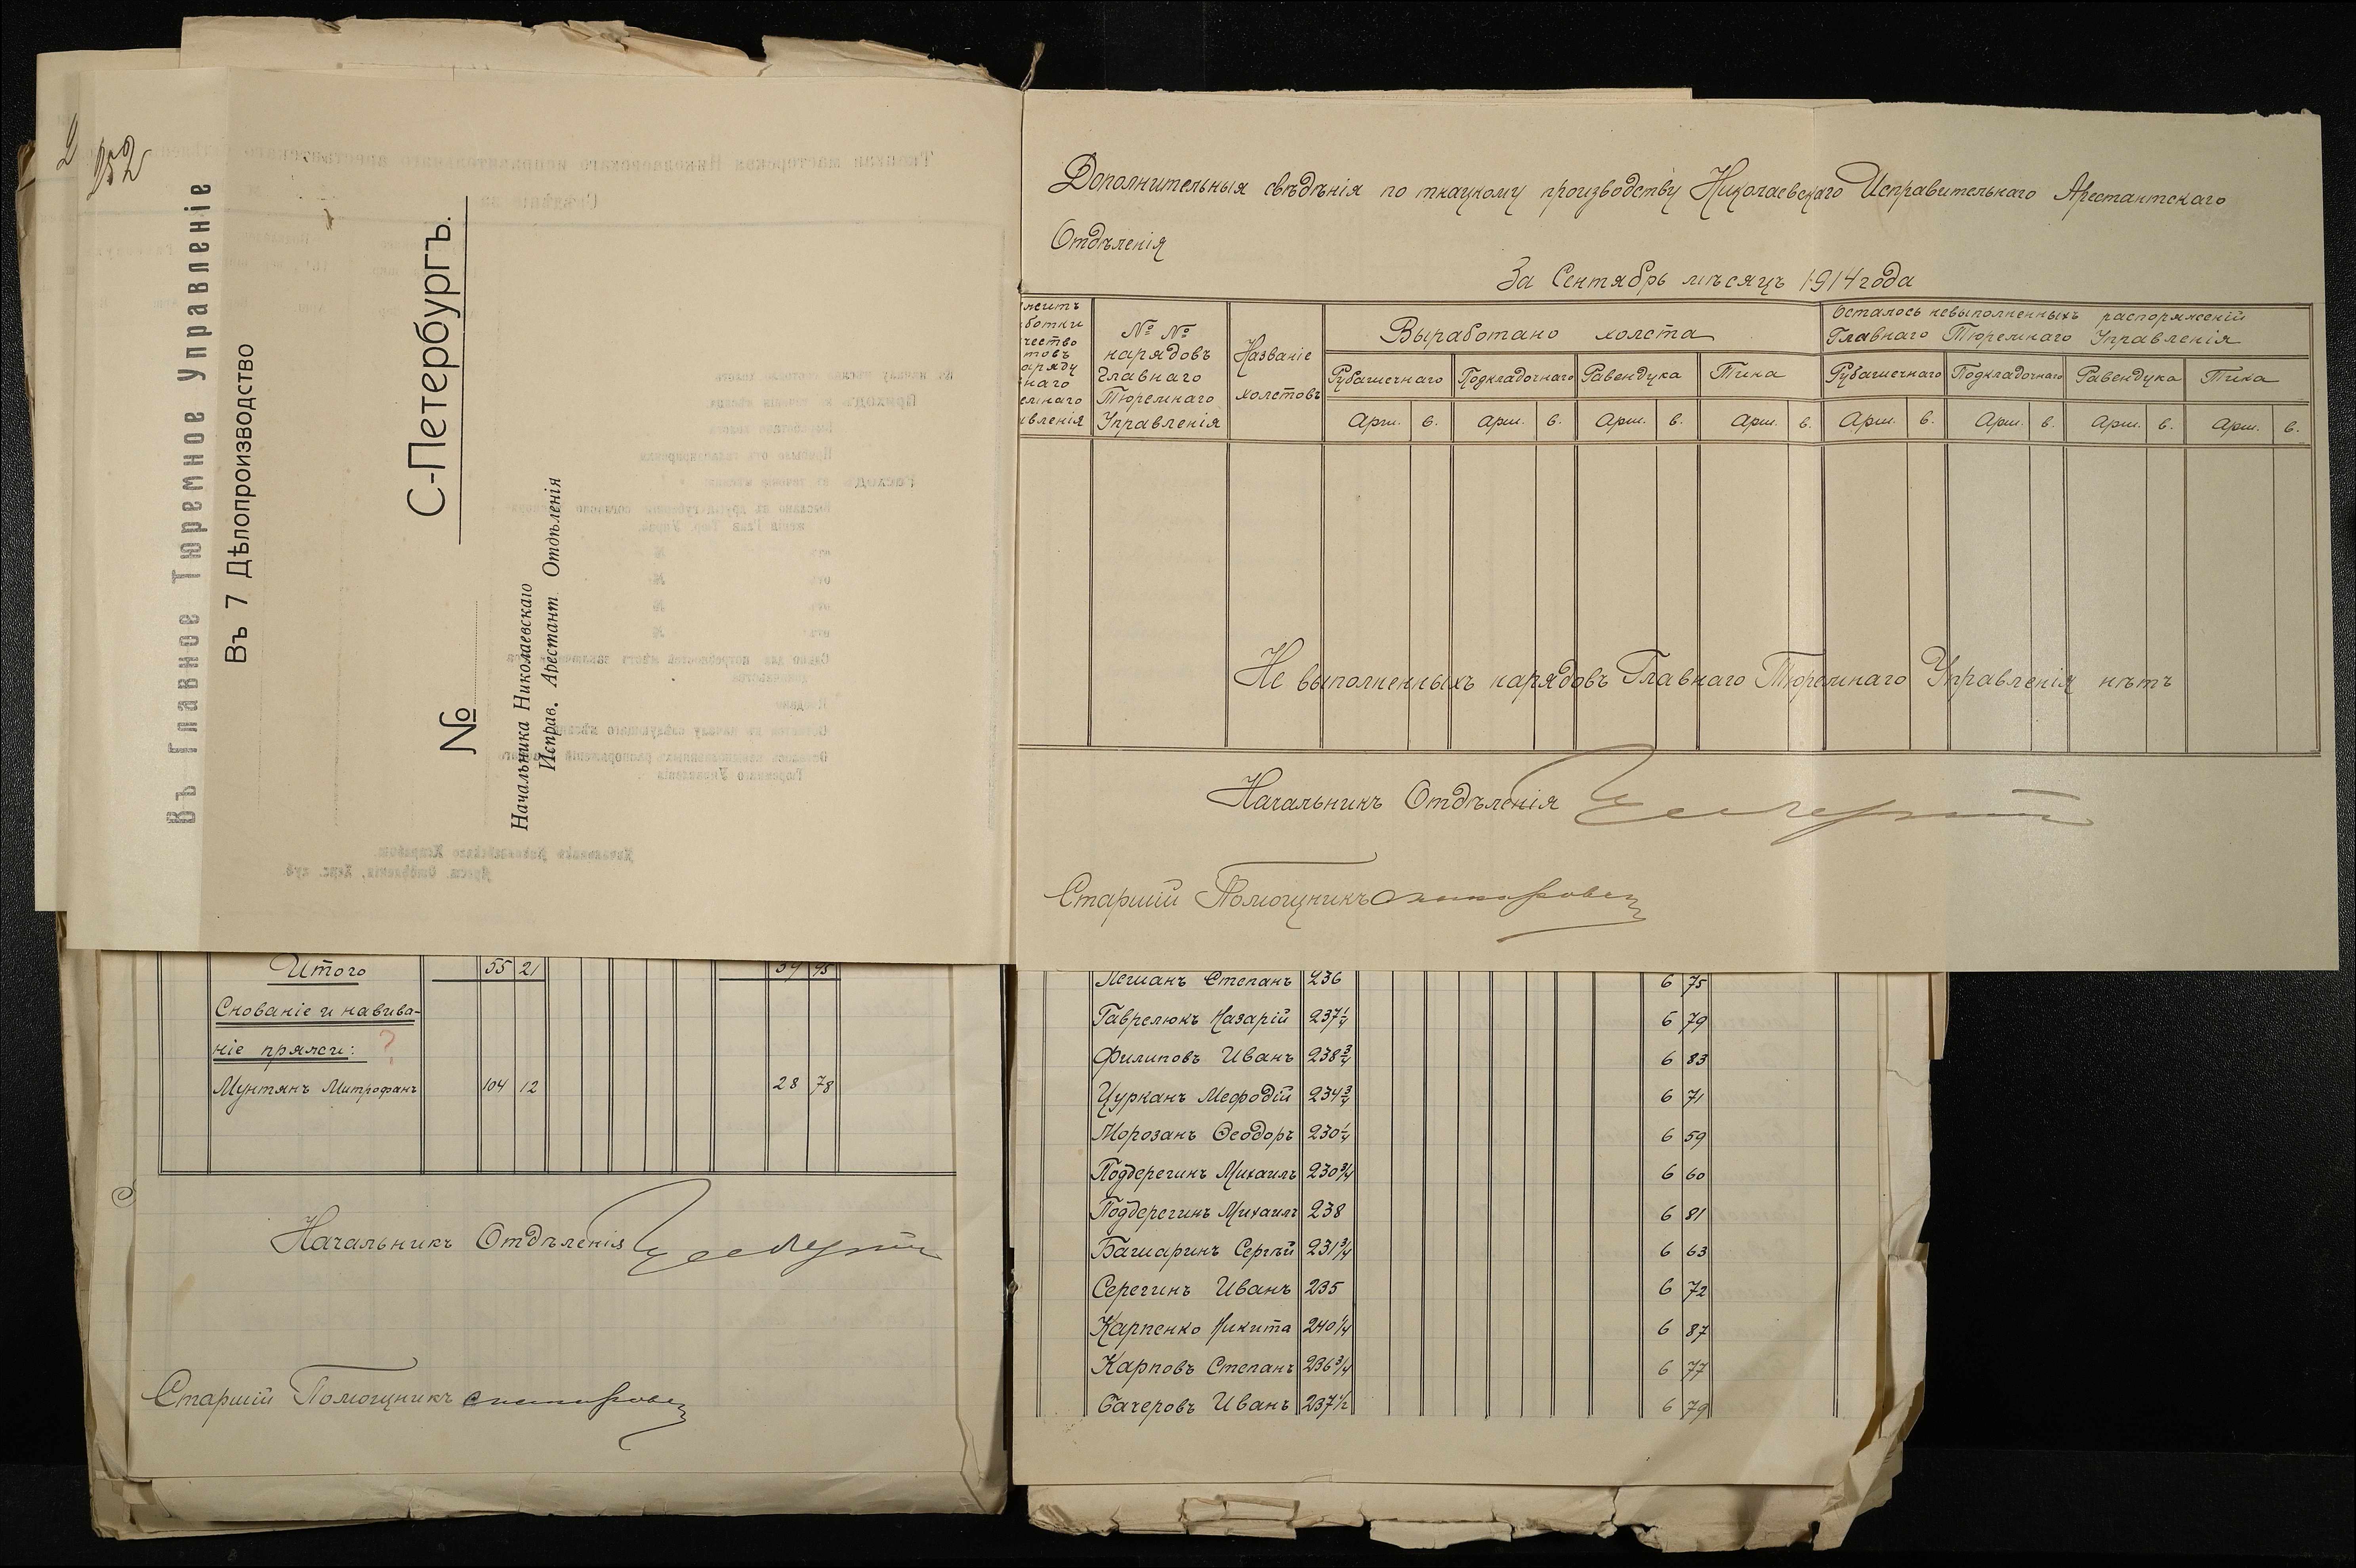 252
Въ Главное Тюремное Управленіе
Въ 7 Дѣлопроизводство
С-Петербургъ.
№
Начальника Николаевскаго
Исправ. Арестант Отдѣленія
Дополнительныя свѣдѣнія по ткацкому производству Николаевскаго Исправительнаго Арестантскаго
Отдѣленія
За Сентябрь мѣсяцъ 1914 года
№ № нарядовъ Главнаго Тюремнаго Управленія
Названіе холстовъ
Выработано холста
Осталось невыполненныхъ распоряженій
Главнаго Тюремнаго Управленія
Рубашечнаго Подкладочнаго Равендука Тика Рубашечнаго Подкладочнаго Равендука Тика
Арш. в. Арш. в. Арш. в. Арш. в. Арш. в. Арш. в. Арш. в. Арш. в.
Не выполненныхъ нарядовъ Главнаго Тюремнаго Управленія нѣтъ
Начальникъ Отдѣленія
Старшій Помощникъ
Итого 55 21
Снованіе и навива-
ніе пряжи: ?
Мунтянъ Митрофанъ 104 12 28 78
Начальникъ Отдѣленія
Старшій Помощникъ
Степанъ 236 6 75
Гаврелюкъ Назарій 237 1/4 6 79
Филиповъ Иванъ 238 3/4 6 83
Цурканъ Мефодій 234 3/4 6 71
Морозанъ Ѳеодоръ 230 1/4 6 59
Поддерегинъ Михаилъ 230 3/4 6 60
Поддерегинъ Михаилъ 238 6 81
Башаринъ Сергѣй 231 3/4 6 63
Серегинъ Иванъ 235 6 72
Карпенко Никита 240 1/4 6 87
Карповъ Степанъ 236 3/4 6 77
Сачеровъ Иванъ 237 1/2 6 79